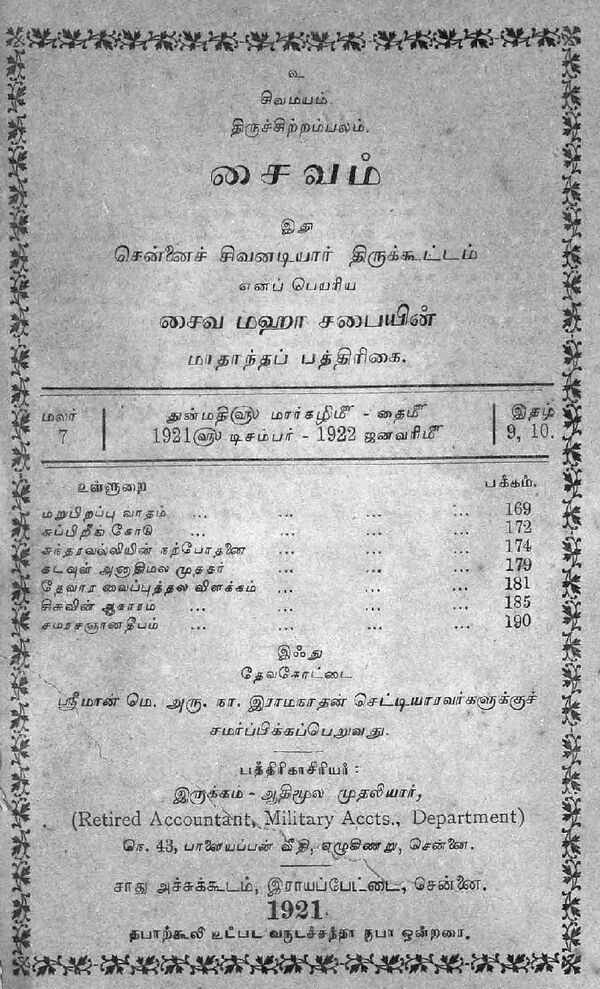 உ
சிவமயம்.
திருச்சிற்றம்பலம்.
சைவம்
இது
சென்னைச் சிவனடியார் திருக்கூட்டம்
எனப் பெயரிய
சைவ மஹா சபையின்
மாதாந்தப் பத்திரிகை.
மலர் 7
துன்மதி௵ மார்கழி௴ - தை௴
1921௵ டிசம்பர் - 1922 ஜனவரி௴
இதழ் 9, 10.
உள்ளுறை பக்கம்.
மறுபிறப்பு வாதம் ... ... ... 169
சுப்பிறீங் கோடு ... ... ... 172
சுந்தரவல்லியின் நற்போதனை ... ... ... 174
கடவுள் அனாதிமல முத்தர் ... ... ... 179
தேவார வைப்புத்தல விளக்கம் ... ... ... 181
சிசுவின் ஆகாரம் ... ... ... 185
சமரசஞானதீபம் ... ... ... 190
இஃது
தேவகோட்டை
ஸ்ரீமான் மெ. அரு. நா. இராமநாதன் செட்டியாரவர்களுக்குச்
சமர்ப்பிக்கப்பெறுவது.
பத்திரிகாசிரியர் :
இருக்கம - ஆதிமூல முதலியார்,
(Retired Accountant, Military Accts., Department)
நெ. 43, பாளையப்பன் வீதி, எழுகிணறு, சென்னை.
சாது அச்சுக்கூடம், இராயப்பேட்டை, சென்னை.
1921.
தபாற்கூலி உட்பட வருடச்சந்தா ரூபா ஒன்றரை.